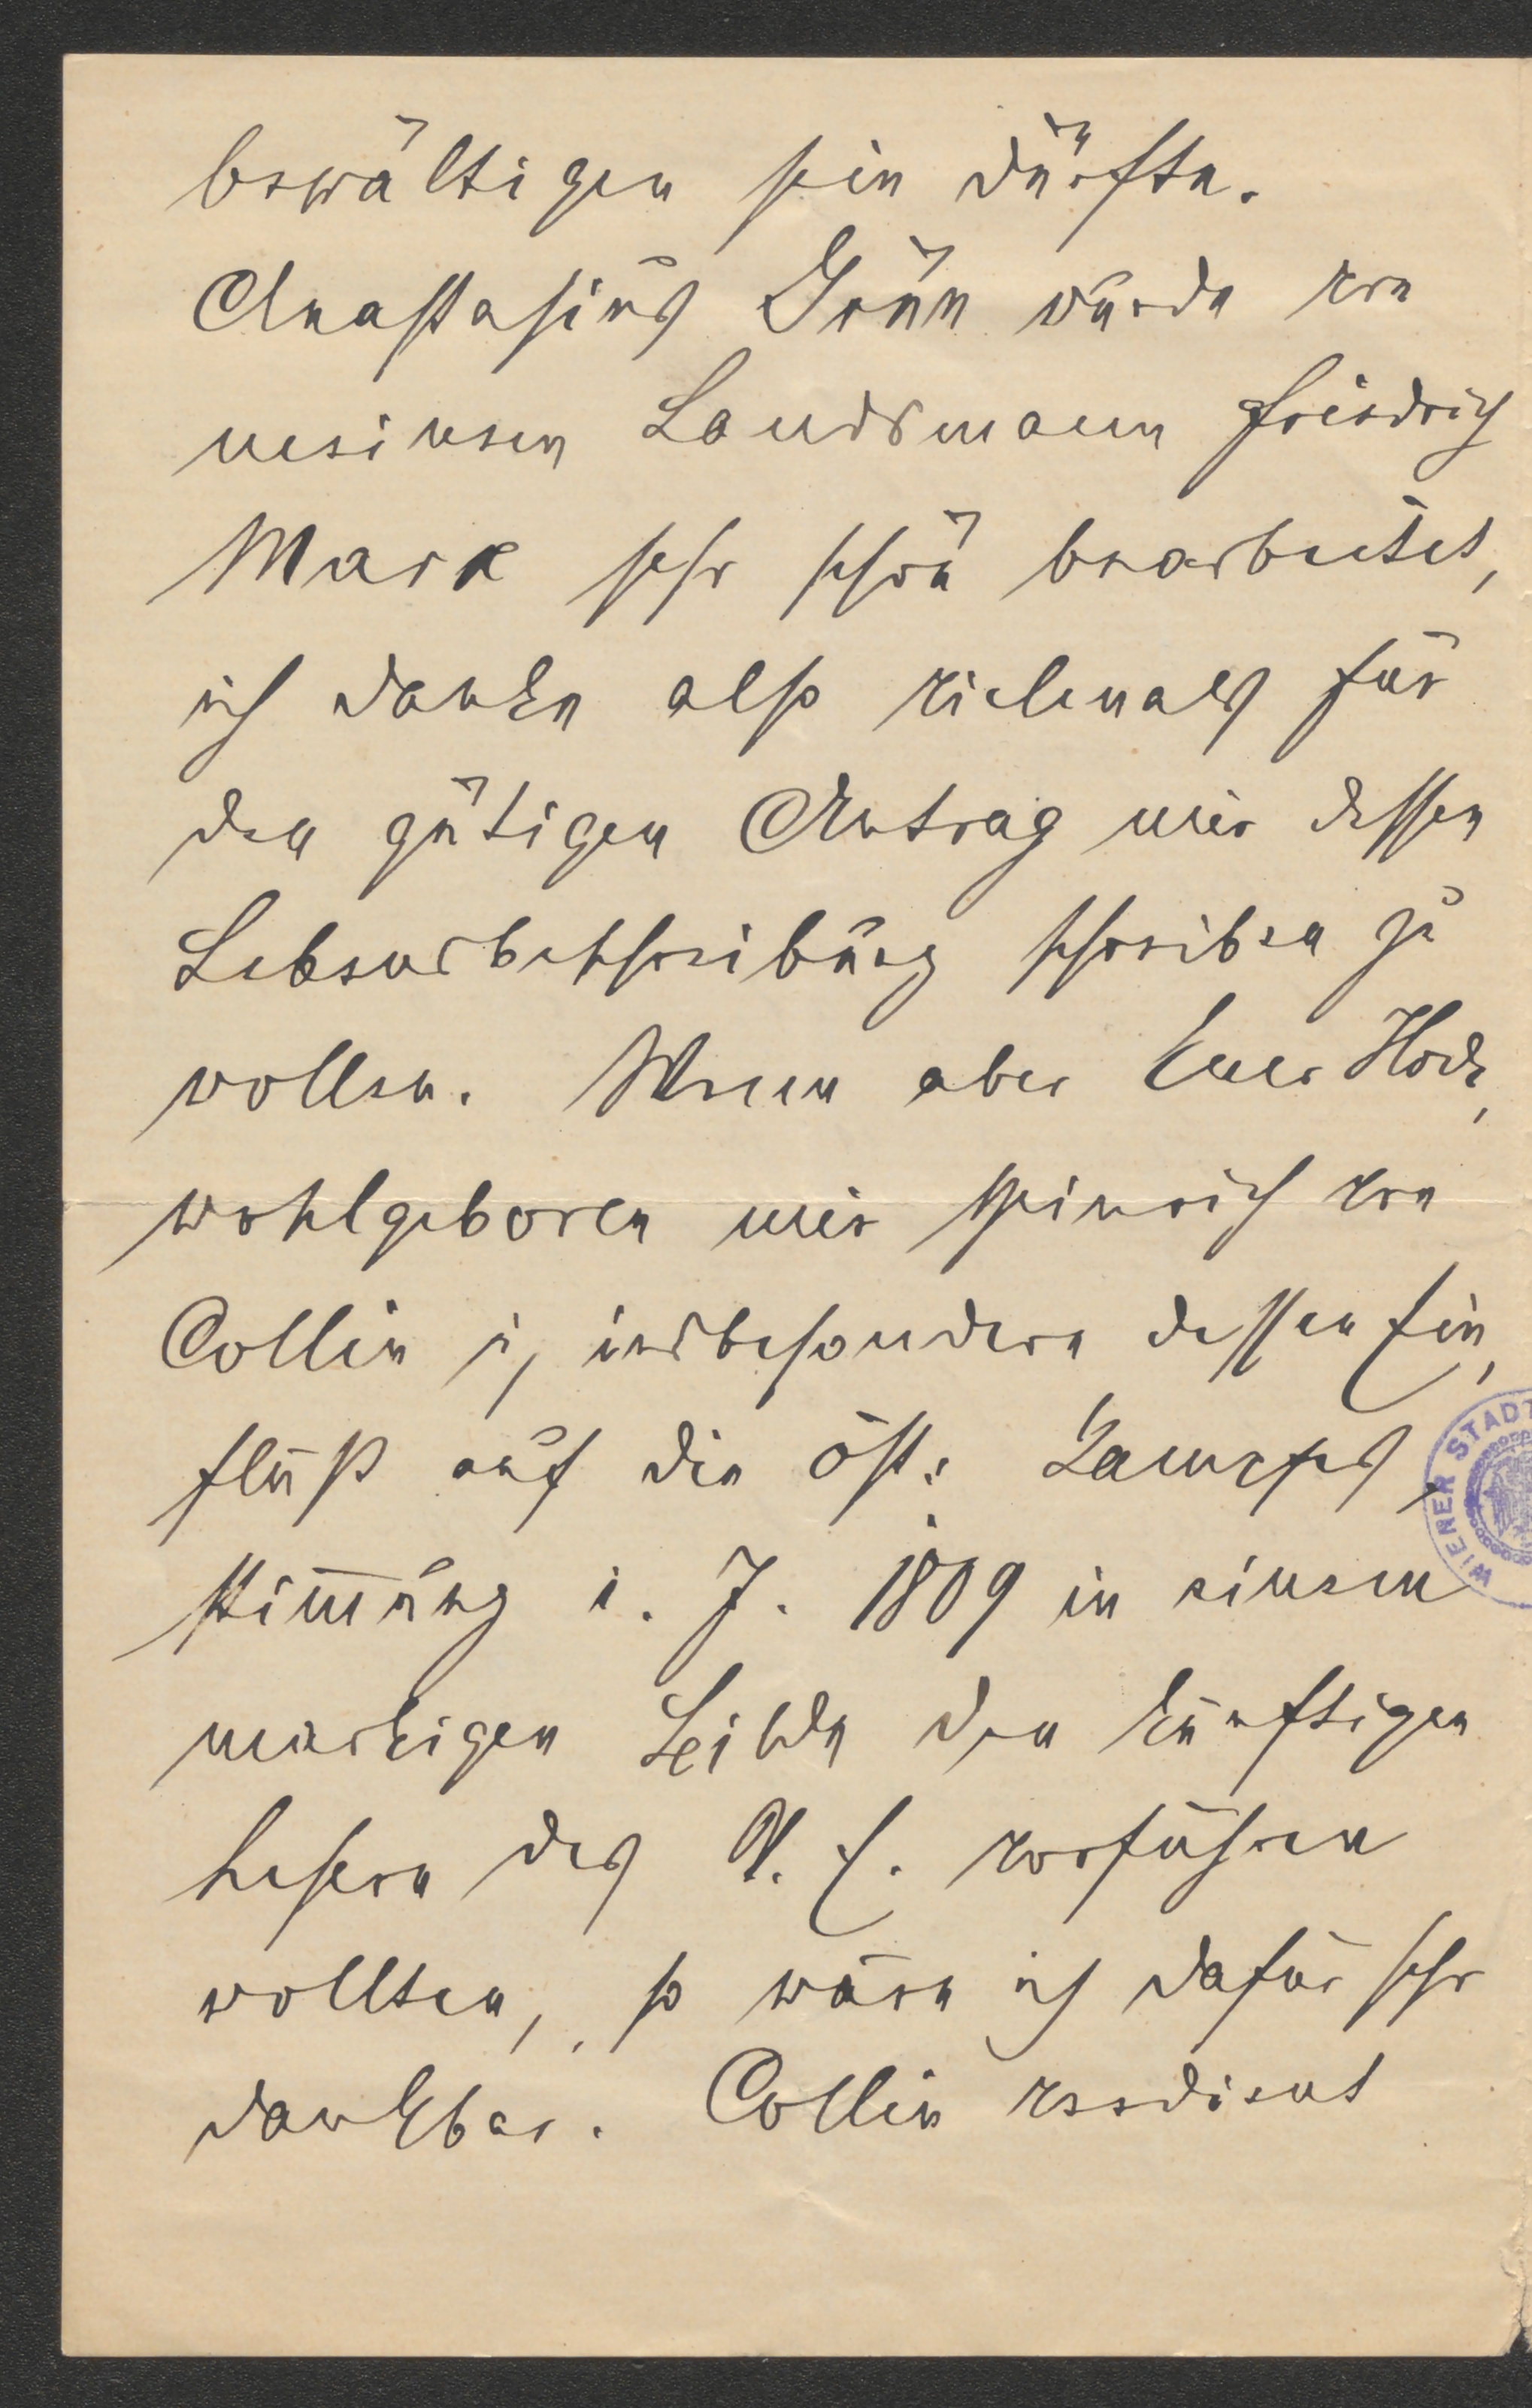 bewältigen sein dürfte.
Anastasius Grün wurde von
meinem Landsmann Friedrich
Marx sehr schön bearbeitet,
ich danke also vielmals für
den gütigen Antrag mir dessen
Lebensbeschreibung schreiben zu
wollen. Wenn aber Euer Hoch,
wohlgeboren mir Heinrich von
Collin u, insbesondere dessen Ein,
fluß auf die öst: Kampfes,
stimmung i. J. 1809 in einem
markigen Bilde den künftigen
Lesern des A. E. vorführen
wollten, so wäre ich dafür sehr
dankbar. Collin verdient
WIENER STADT